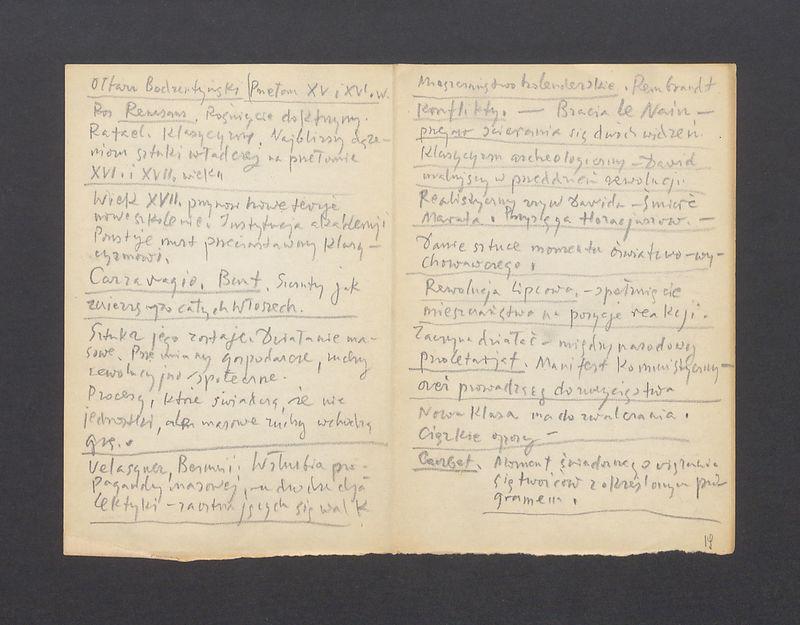 Ołtarz Bodzentyński | Przełom XV i XVI. w.
Ros Renesans. Rośnięcie doktryny.
Rafael. Klasycyzm. Najbliższy dąże-
niom sztuki władczej na przełomie
XVI. i XVII. wieku
Wiek XVII. przynosi nowe teorje
nowe szkolenie. Instytucja akademji
Powstaje nurt przeciwstawny klasy-
cyzmowi.
Carravagio. Bunt. Ścigany jak
zwierzę po całych Włoszech.
Sztuka jego zostaje. Działanie ma-
sowe. Przemiany gospodarcze, ruchy
rewolucyjno-społeczne.
Procesy, które świadczą, że nie
jednostki, ale masowe ruchy wchodzą
grę.
Velasquez, Bernini. W służbie pro-
pagandy masowej, - u dialektyki - zaostrzających się walk
Mieszczaństwo holenderskie. Rembrandt
Konflikty. — Bracia le Nain —
ścierania się dwóch widzeń.
Klasycyzm archeologiczny – David
malujący w przeddzień rewolucji.
Realistyczny nurt Davida – Śmierć
Marata. Przysięga Horacjuszów. —
Danie sztuce momentu oświatowo-wy-
chowawczego.
Rewolucja Lipcowa. – spóźnięcie
mieszczaństwa na pozycje reakcji.
Zaczyna działać – międzynarodowy
proletarjat. Manifest Komunistyczny –
oręż prowadzący do zwycięstwa
Nowa klasa ma do zwalczania.
Ciężkie opory –
Courbet. Moment świadomego wiązania
się twórców z określonym pro-
gramem.
19